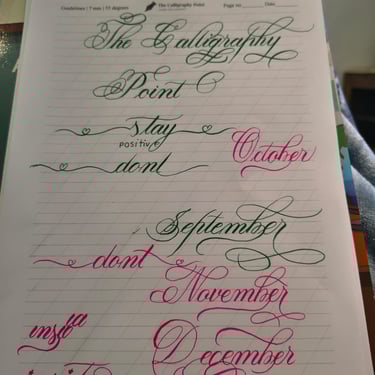 Guidelines | 7 mm | 55 degrees
The Calligraphy Point
Page no
Date
The Calligraphy
Point
stay
positive
October
dont
September
dont
November
December